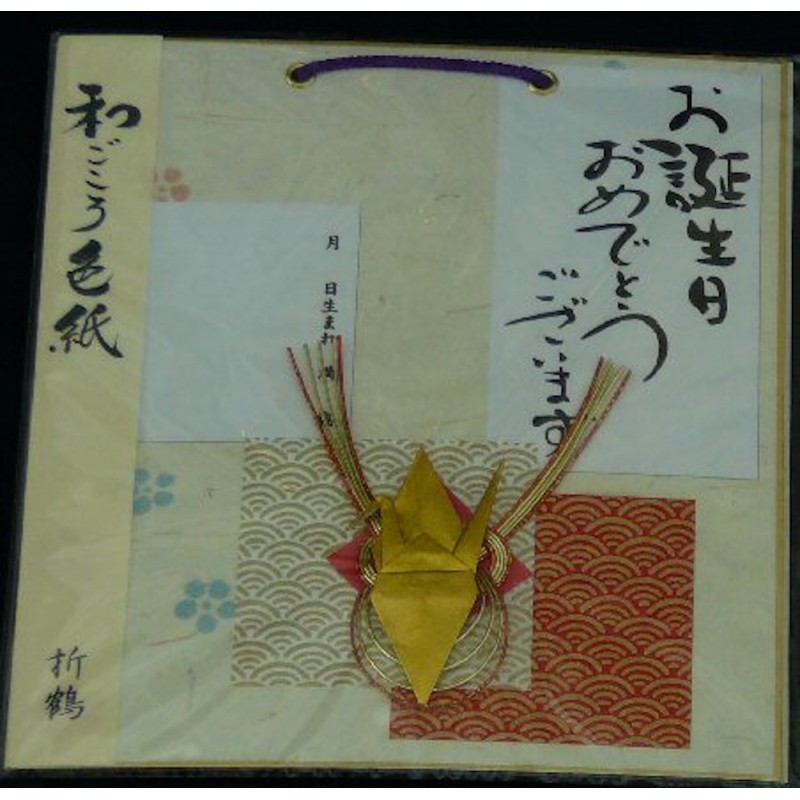 お誕生日
おめでとう
ございます
月　日生まれ　満　歳
和ごころ色紙
折鶴